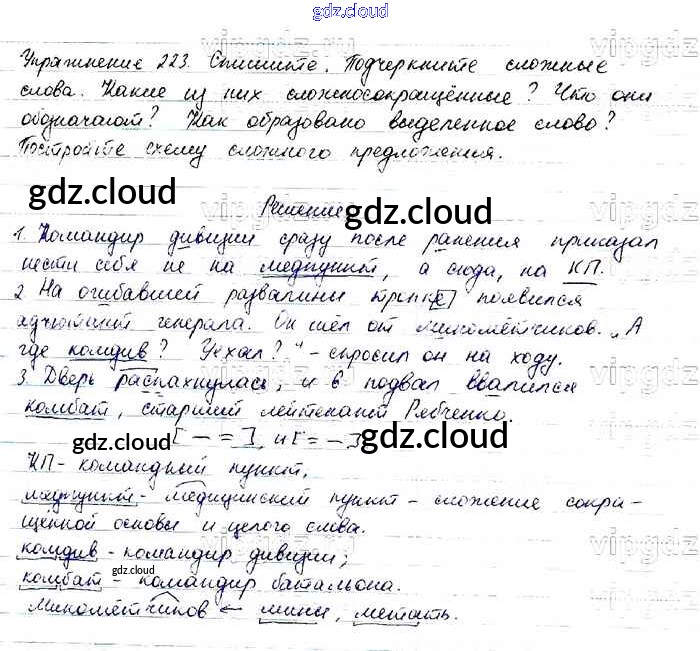 gdz.cloud
vipgdz.ru
Упражнение 223. Спишите. Подчеркните сложные
слова. Какие из них сложносокращённые? Что они
обозначают? Как образовано выделенное слово?
Постройте схему сложного предложения.
gdz.cloud
Решение
gdz.cloud
vipgdz
1. Командир дивизии сразу после ранения приказал
нести себя не на медпункт, а сюда, на КП.
2. На огибавшей развалины тропке появился
адъютант генерала. Он шёл от миномётчиков. „А
где комдив? Уехал?" - спросил он на ходу.
3. Дверь распахнулась, и в подвал ввалился
комбат, старший лейтенант Рябченко.
gdz.cloud [ — = ], и [ = — ] gdz.cloud
КП - командный пункт,
медпункт - медицинский пункт - сложение сокра-
щённой основы и целого слова.
комдив - командир дивизии;
комбат - командир батальона.
gdz.cloud
Миномётчиков ← мины, метать.